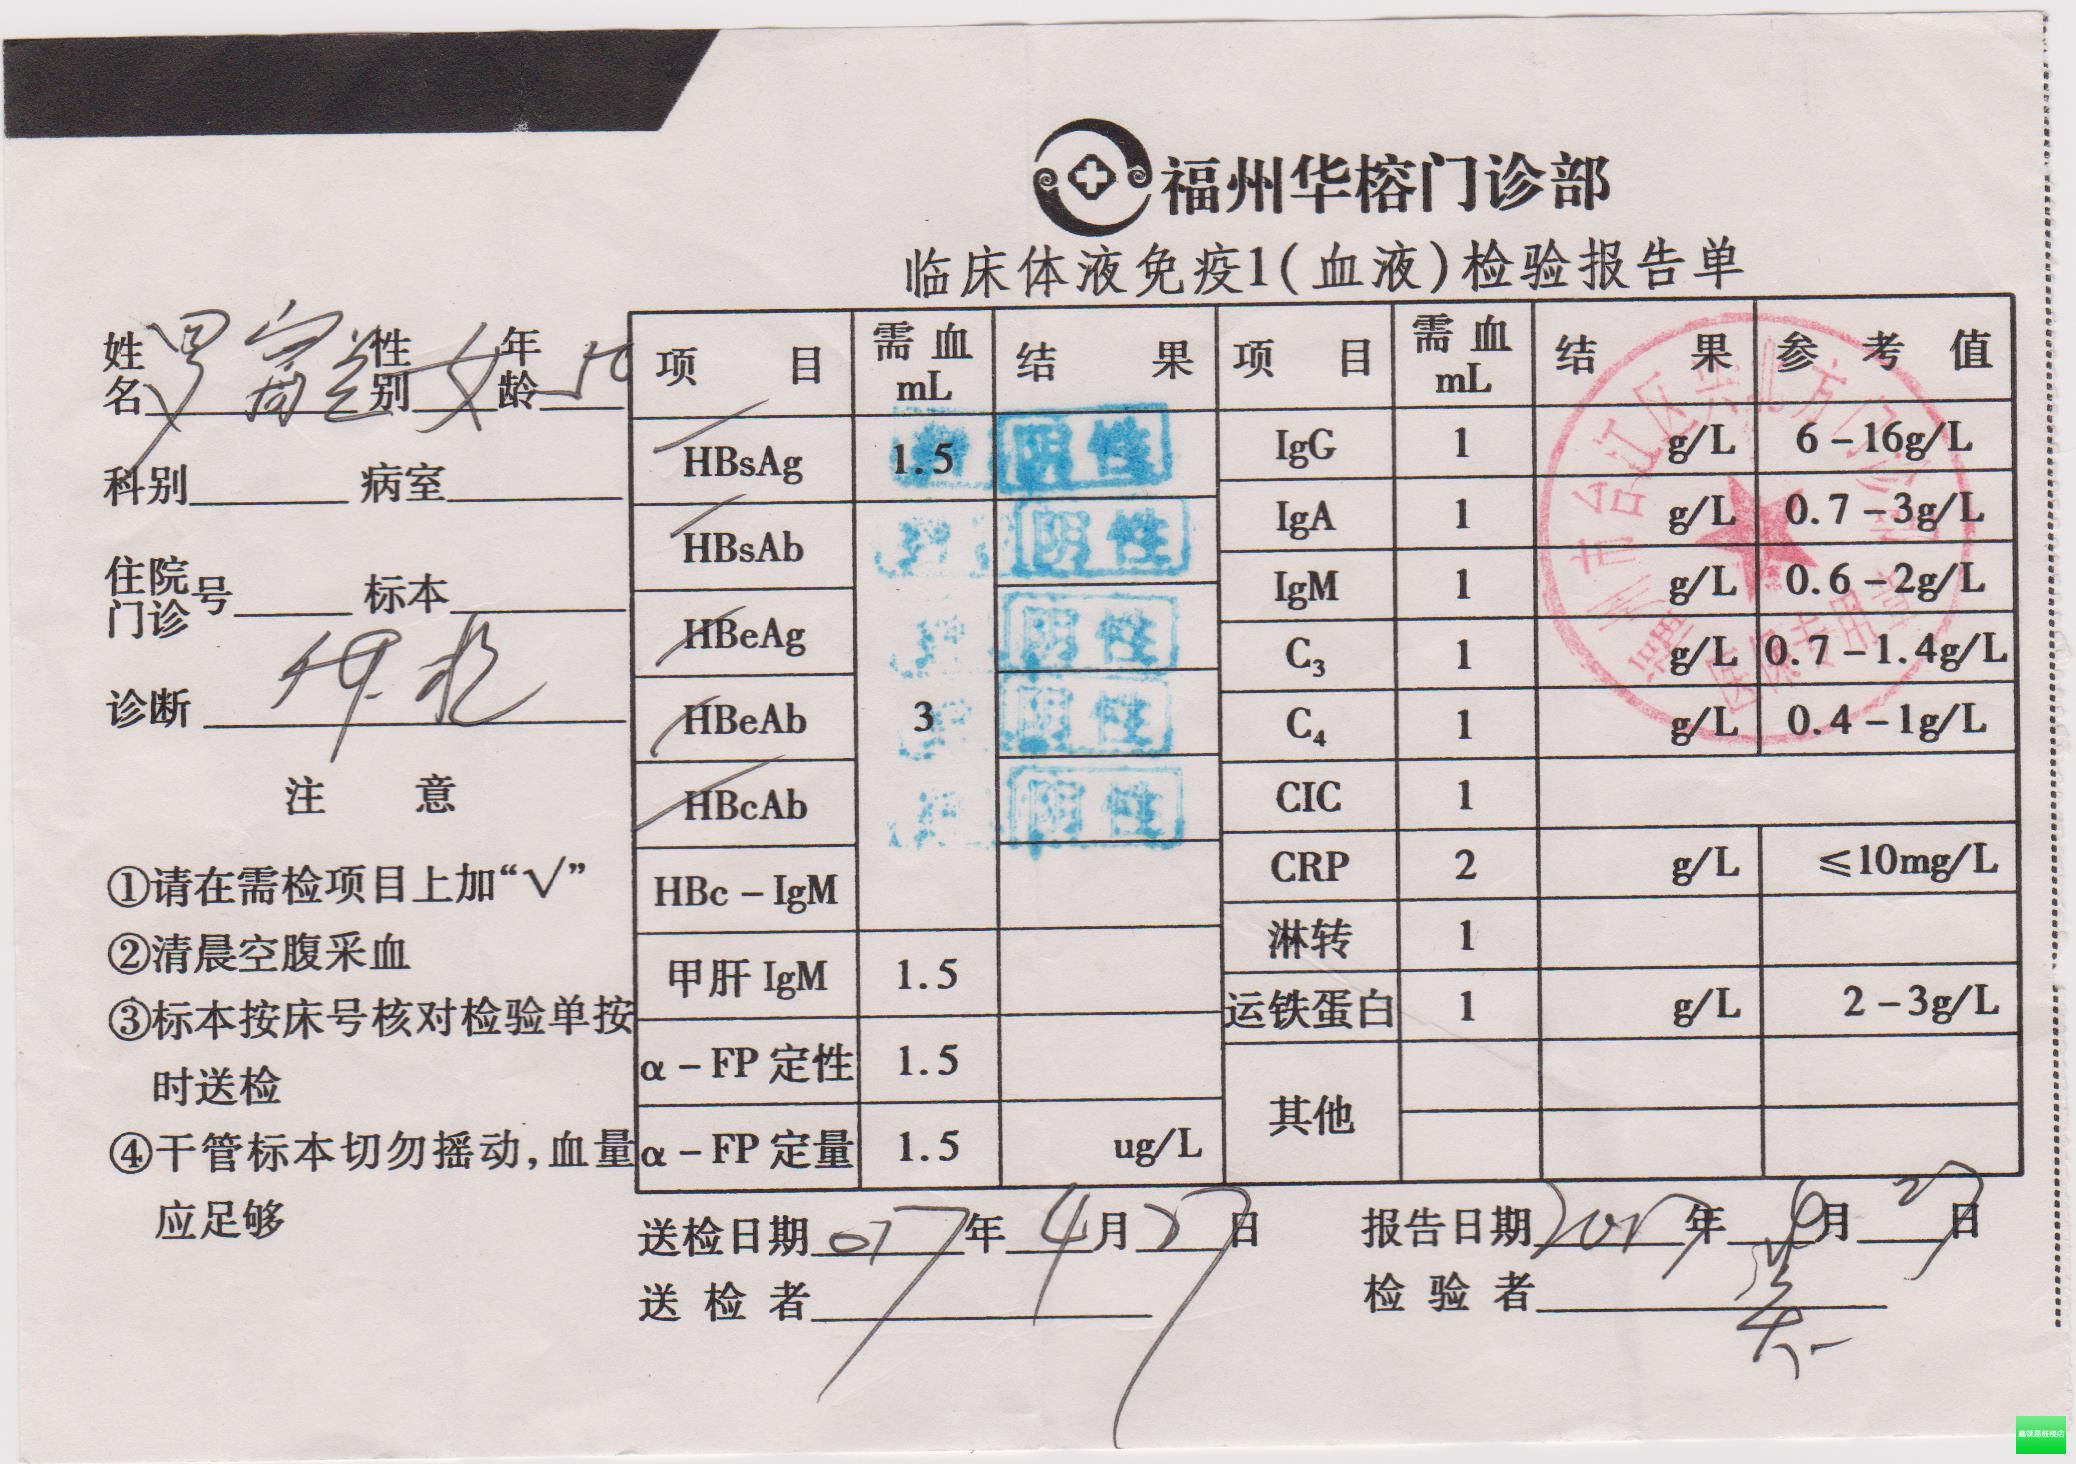 福州华榕门诊部
临床体液免疫1(血液)检验报告单
姓名 性别 女 年龄
科别 病室
住院门诊号 标本
诊断 体检
注 意
①请在需检项目上加“√”
②清晨空腹采血
③标本按床号核对检验单按
时送检
④干管标本切勿摇动,血量
应足够
项 目 需血mL 结 果 项 目 需血mL 结 果 参 考 值
HBsAg 1.5 阴性 IgG 1 g/L 6-16g/L
HBsAb 阴性 IgA 1 g/L 0.7-3g/L
HBeAg 阴性 IgM 1 g/L 0.6-2g/L
C₃ 1 g/L 0.7-1.4g/L
HBeAb 3 阴性 C₄ 1 g/L 0.4-1g/L
HBcAb 阴性 CIC 1
HBc-IgM CRP 2 g/L ≤10mg/L
淋转 1
甲肝 IgM 1.5 运铁蛋白 1 g/L 2-3g/L
α-FP 定性 1.5
α-FP 定量 1.5 ug/L 其他
送检日期 年 4月27日 报告日期 2017年 月27日
送 检 者 检 验 者
医保专用章